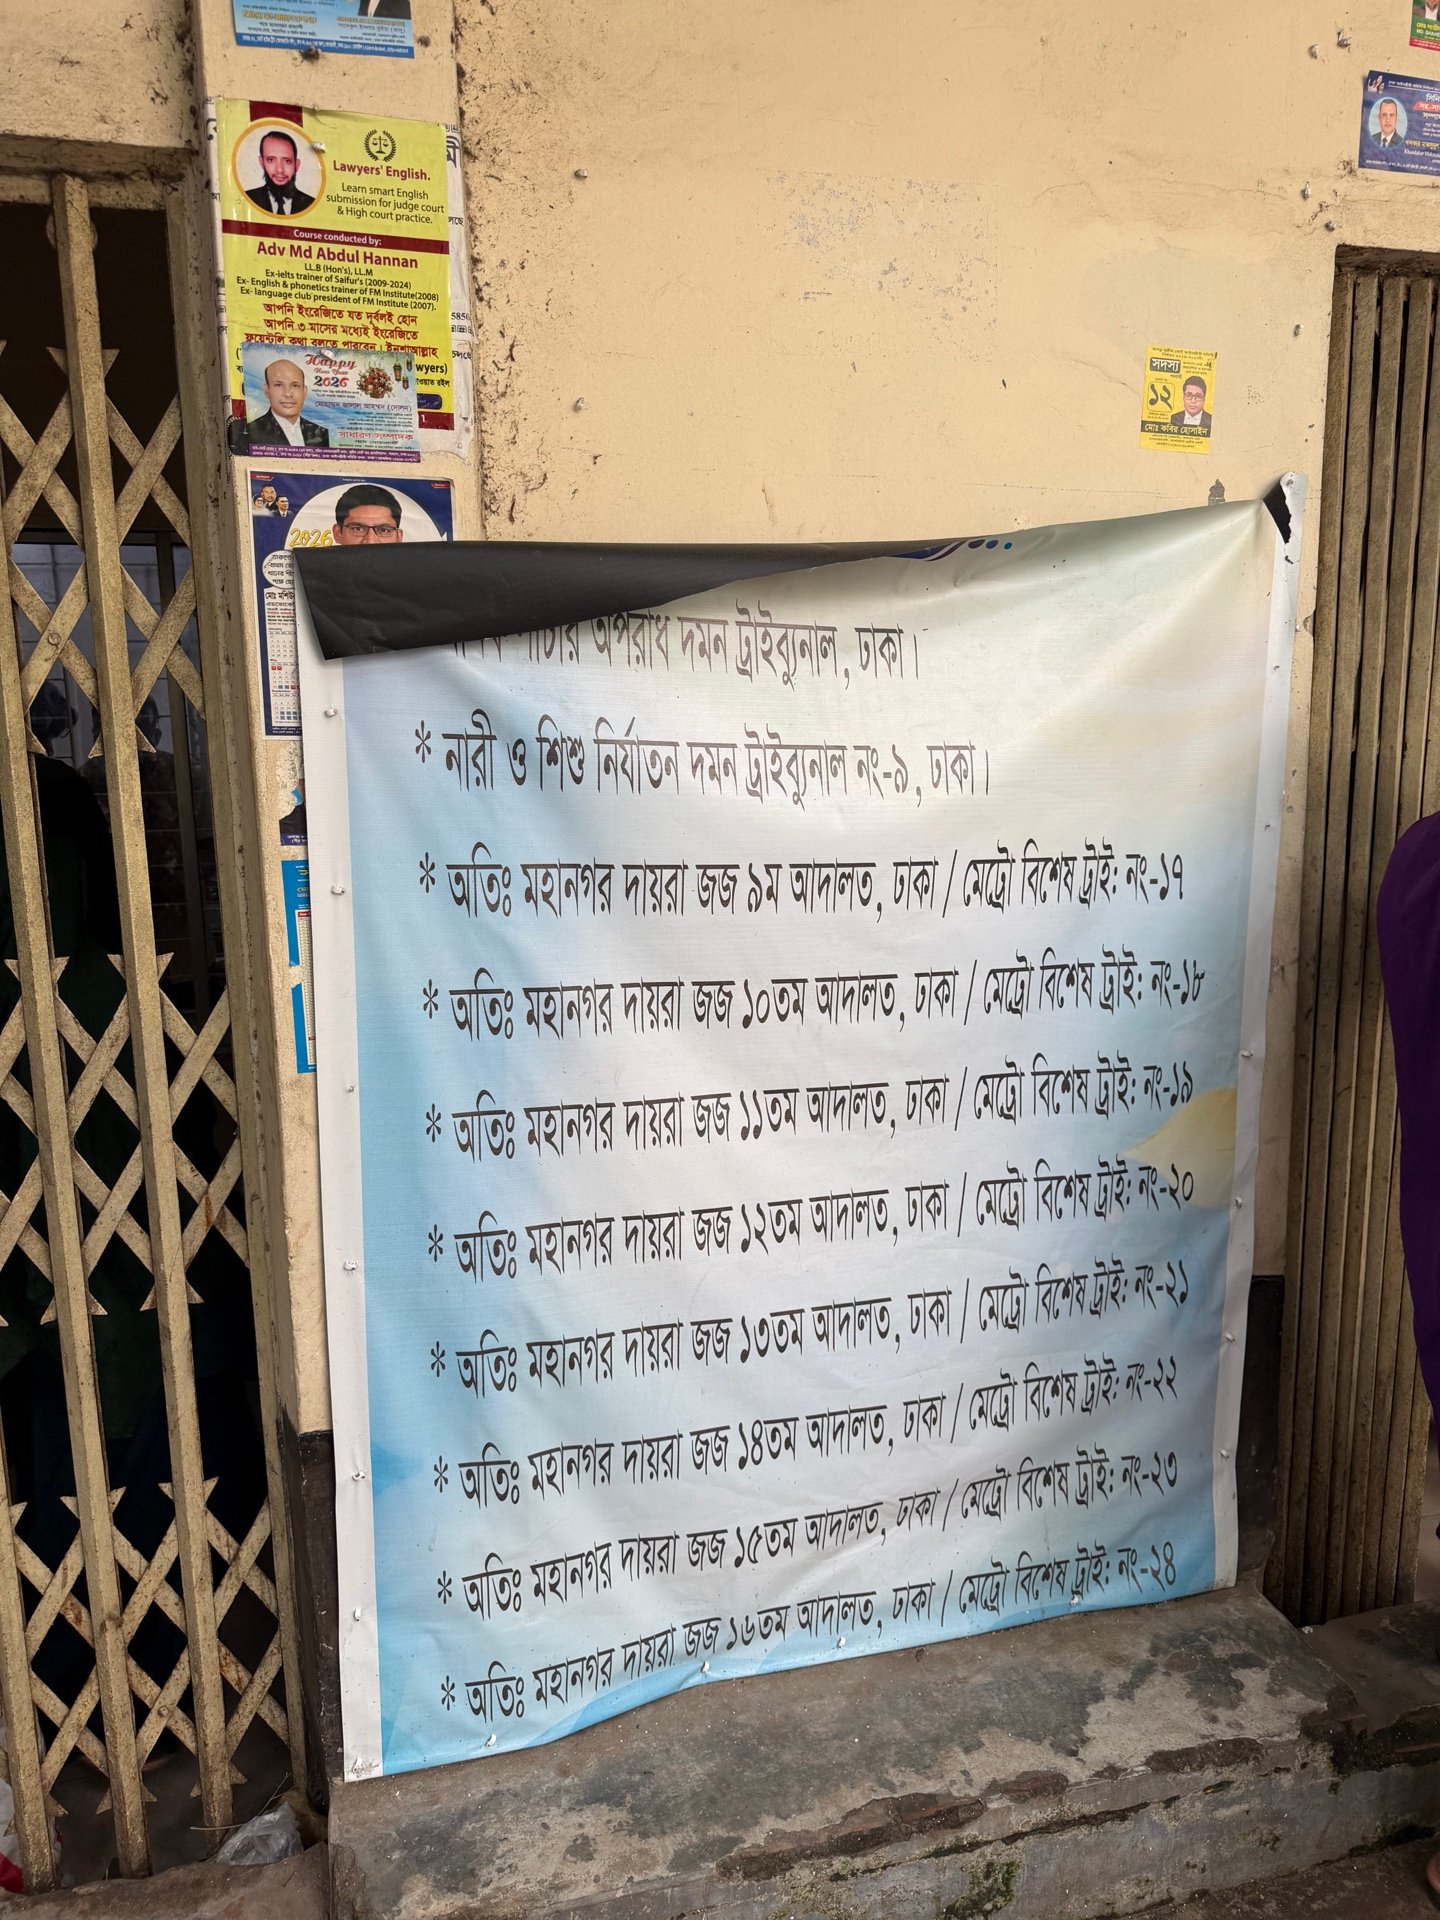 Lawyers' English.
Learn smart English
submission for judge court
& High court practice.
Course conducted by:
Adv Md Abdul Hannan
LL.B (Hon's), LL.M
Ex-ielts trainer of Saifur's (2009-2024)
Ex- English & phonetics trainer of FM Institute(2008)
Ex- language club president of FM Institute (2007).
আপনি ইংরেজিতে যত দূর্বলই হোন
আপনি ৩ মাসের মধ্যেই ইংরেজিতে
ফ্লুয়েন্টলি কথা বলতে পারবেন। ইনশাআল্লাহ
Happy
New Year
2026
মোহাম্মদ জালাল আহম্মদ (দোলন)
সাধারণ সম্পাদক
2026
সদস্য
১২
মোঃ কবির হোসাইন
পাচার অপরাধ দমন ট্রাইব্যুনাল, ঢাকা।
* নারী ও শিশু নির্যাতন দমন ট্রাইব্যুনাল নং-৯, ঢাকা।
* অতিঃ মহানগর দায়রা জজ ৯ম আদালত, ঢাকা / মেট্রো বিশেষ ট্রাই: নং-১৭
* অতিঃ মহানগর দায়রা জজ ১০তম আদালত, ঢাকা / মেট্রো বিশেষ ট্রাই: নং-১৮
* অতিঃ মহানগর দায়রা জজ ১১তম আদালত, ঢাকা / মেট্রো বিশেষ ট্রাই: নং-১৯
* অতিঃ মহানগর দায়রা জজ ১২তম আদালত, ঢাকা / মেট্রো বিশেষ ট্রাই: নং-২০
* অতিঃ মহানগর দায়রা জজ ১৩তম আদালত, ঢাকা / মেট্রো বিশেষ ট্রাই: নং-২১
* অতিঃ মহানগর দায়রা জজ ১৪তম আদালত, ঢাকা / মেট্রো বিশেষ ট্রাই: নং-২২
* অতিঃ মহানগর দায়রা জজ ১৫তম আদালত, ঢাকা / মেট্রো বিশেষ ট্রাই: নং-২৩
* অতিঃ মহানগর দায়রা জজ ১৬তম আদালত, ঢাকা / মেট্রো বিশেষ ট্রাই: নং-২৪